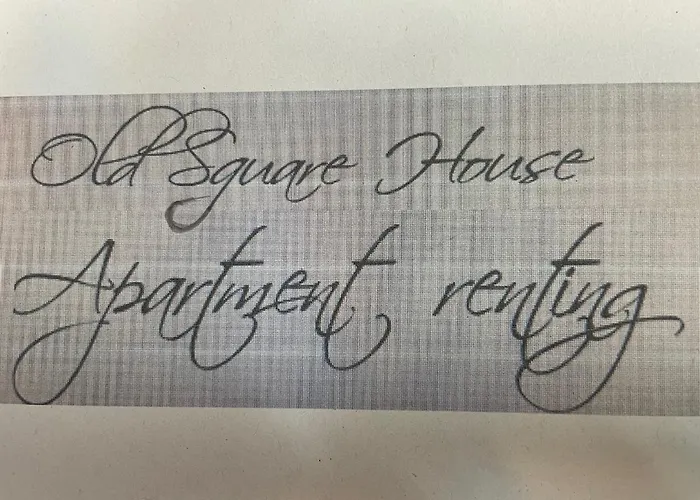 Old Square House
Apartment renting